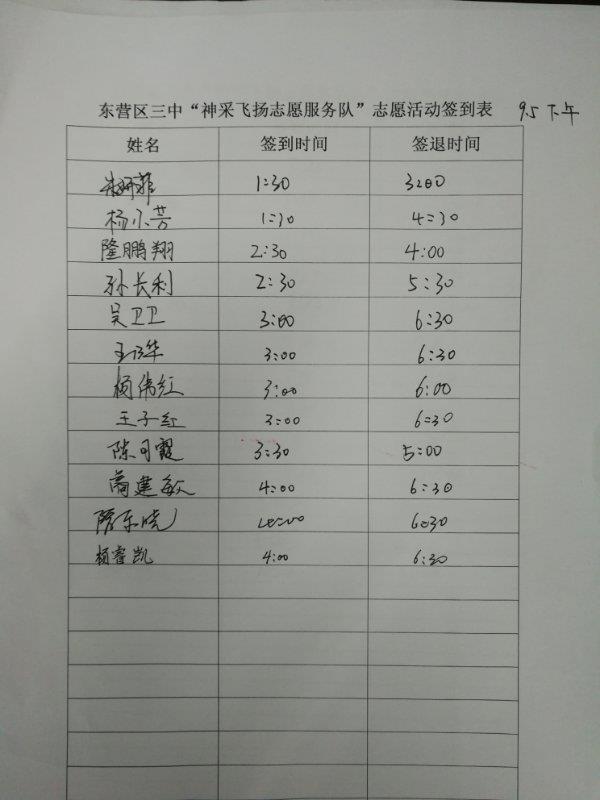 东营区三中“神采飞扬志愿服务队”志愿活动签到表 9.5 下午
姓名 签到时间 签退时间
1:30 3:00
杨小芳 1:30 4:30
隆鹏翔 2:30 4:00
孙长利 2:30 5:30
吴卫卫 3:00 6:30
王 3:00 6:30
杨伟红 3:00 6:00
王子红 3:00 6:30
陈月霞 3:30 5:00
蔺建敏 4:00 6:30
隋东晓 4:00 6:30
杨睿凯 4:00 6:30